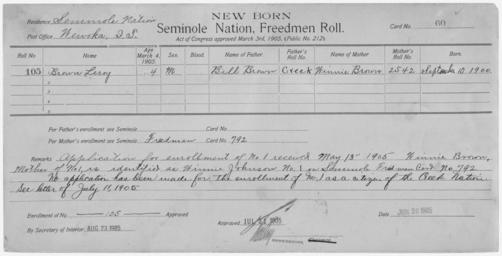 NEW BORN
Residence Seminole Nation
Seminole Nation, Freedmen Roll.
Card No. 60
Post Office, Wewoka, I.T.
Act of Congress approved March 3rd, 1905, (Public No. 212).
Roll No Name Age March 4, 1905. Sex. Blood. Name of Father Father's Roll No. Name of Mother Mother's Roll No. Born.
105 Brown Leroy 4 M Bill Brown Creek Winnie Brown 2542 September 10, 1900
For Father's enrollment see Seminole Card No.
For Mother's enrollment see Seminole Freedman Card No. 792
Remarks Application for enrollment of No. 1 received May 15 1905 Winnie Brown,
Mother of No. 1, is identified as Winnie Johnson No. 1 on Seminole Freedmen Card No 792
No application has been made for the enrollment of No. 1 as a citizen of the Creek Nation.
See letter of July 11, 1905
Enrollment of No. 105 Approved
Approved
Date JUN 30 1905
By Secretary of Interior, AUG 23 1905